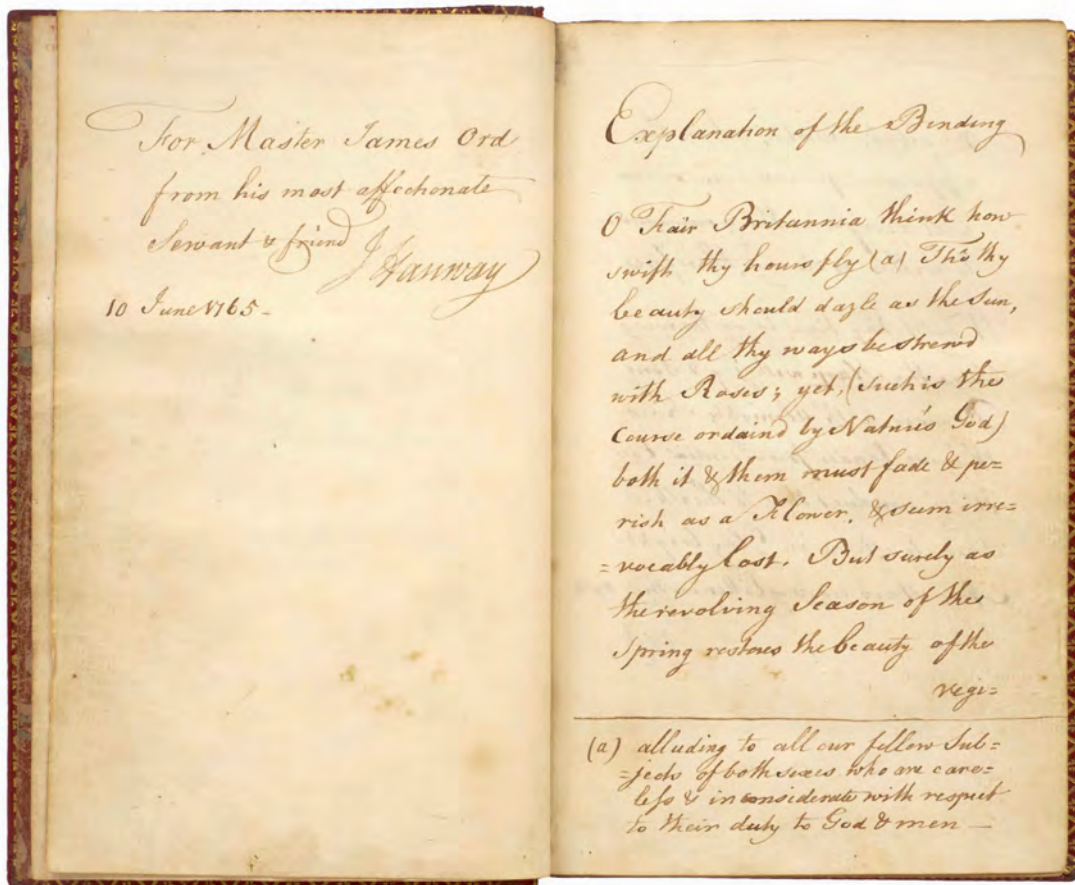 For Master James Ord
from his most affectionate
Servant & friend
J Hanway
10 June 1765 -
Explanation of the Binding
O Fair Britannia think how
swift thy hours fly (a) Tho' thy
beauty should dazle as the Sun,
and all thy ways be strew'd
with Roses; yet, (such is the
Course ordain'd by Nature's God)
both it & them must fade & pe=
rish as a Flower, & seem irre=
=vocably lost. But surely as
the revolving Season of the
Spring restores the beauty of the
vege=
(a) alluding to all our fellow Sub=
=jects of both sexes who are care=
less & inconsiderate with respect
to their duty to God & men —